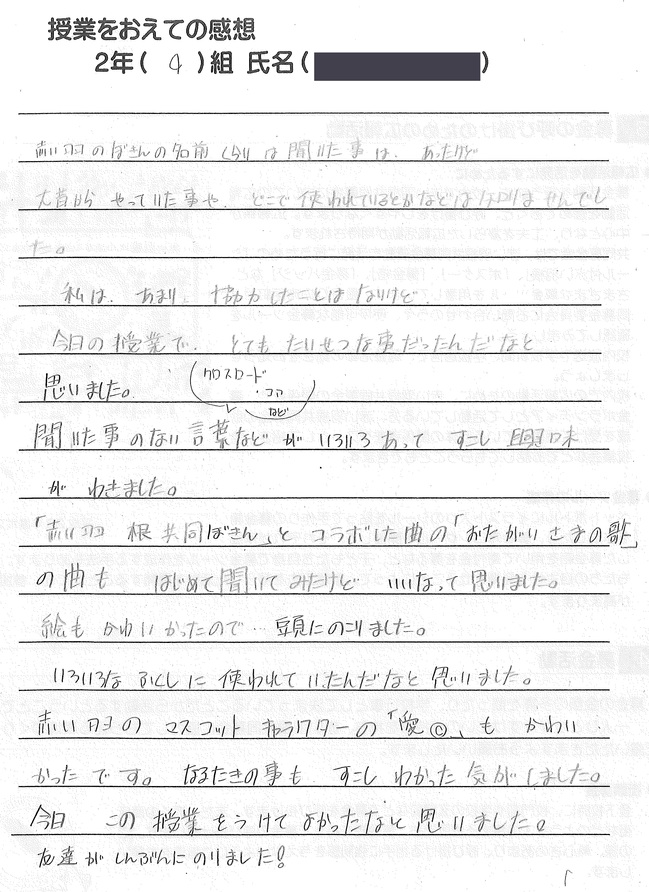 授業をおえての感想
2年( 4 )組 氏名( )
赤い羽のぼきんの名前くらいは聞いた事は、あったけど
大昔から やっていた事や、どこで使われているとかなどは知りませんでし
た。
私は、あまり、協力したことはないけど、
今日の授業で、とてもたいせつな事だったんだなと
思いました。
(クロスロード
・コア
など)
聞いた事のない言葉などがいろいろあって すこし興味
が わきました。
「赤い羽 根共同ぼきん」とコラボした曲の「おたがいさまの歌」
の曲も はじめて聞いてみたけど いいなって思いました。
絵もかわいかったので…頭にのこりました。
いろいろな ふくしに使われていたんだなと思いました。
赤い羽の マスコットキャラクターの「愛◎」も かわい
かったです。なるたきの事も すこし わかった気がしました。
今日 この授業をうけてよかったなと思いました。
友達がしんぶんにのりました!